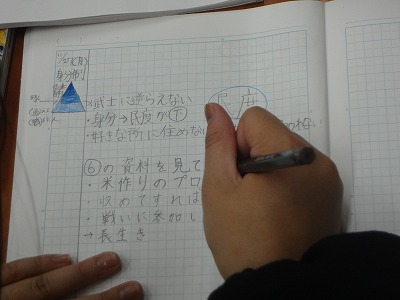 11/27(月)
身分制
武士に逆らえない
・身分→民度が下
民度
・好きな所に住めな
⑥の資料を見て
・米作りのプロ
・収めてすれば
・戦いに参加し
→長生き